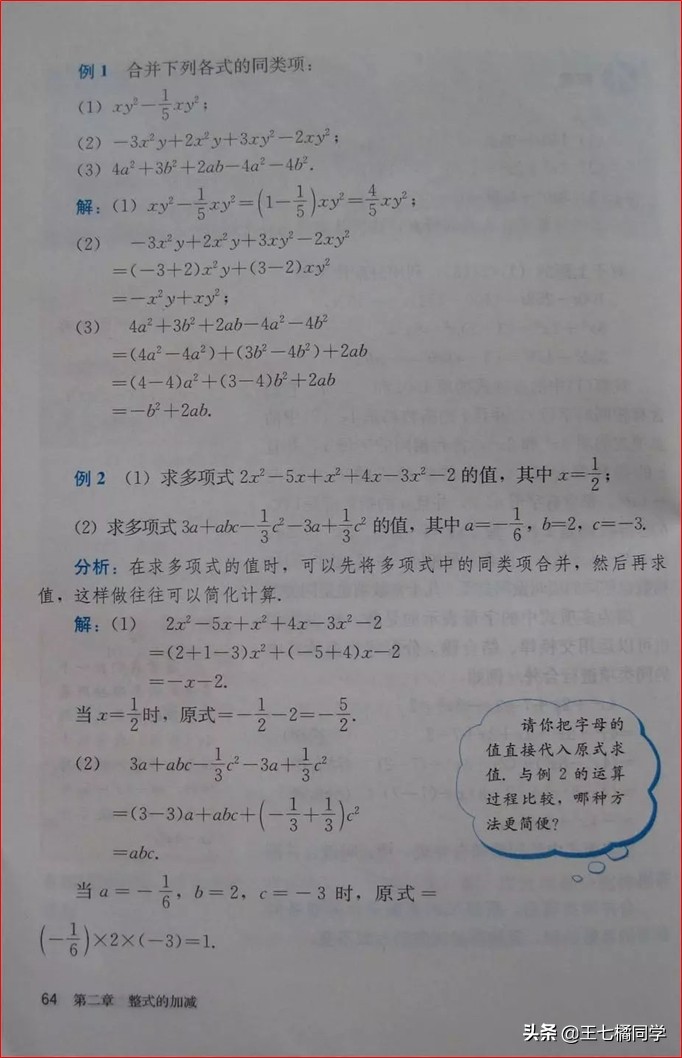 例1 合并下列各式的同类项：
(1) xy²－1/5xy²；
(2) －3x²y＋2x²y＋3xy²－2xy²；
(3) 4a²＋3b²＋2ab－4a²－4b².
解：(1) xy²－1/5xy²＝(1－1/5)xy²＝4/5xy²；
(2) －3x²y＋2x²y＋3xy²－2xy²
＝(－3＋2)x²y＋(3－2)xy²
＝－x²y＋xy²；
(3) 4a²＋3b²＋2ab－4a²－4b²
＝(4a²－4a²)＋(3b²－4b²)＋2ab
＝(4－4)a²＋(3－4)b²＋2ab
＝－b²＋2ab.
例2 (1) 求多项式 2x²－5x＋x²＋4x－3x²－2 的值，其中 x＝1/2；
(2) 求多项式 3a＋abc－1/3c²－3a＋1/3c² 的值，其中 a＝－1/6，b＝2，c＝－3.
分析：在求多项式的值时，可以先将多项式中的同类项合并，然后再求
值，这样做往往可以简化计算.
解：(1) 2x²－5x＋x²＋4x－3x²－2
＝(2＋1－3)x²＋(－5＋4)x－2
＝－x－2.
当 x＝1/2时，原式＝－1/2－2＝－5/2.
(2) 3a＋abc－1/3c²－3a＋1/3c²
＝(3－3)a＋abc＋(－1/3＋1/3)c²
＝abc.
当 a＝－1/6，b＝2，c＝－3 时，原式＝
(－1/6)×2×(－3)＝1.
请你把字母的
值直接代入原式求
值. 与例 2 的运算
过程比较，哪种方
法更简便？
64 第二章 整式的加减
头条 @王七橘同学